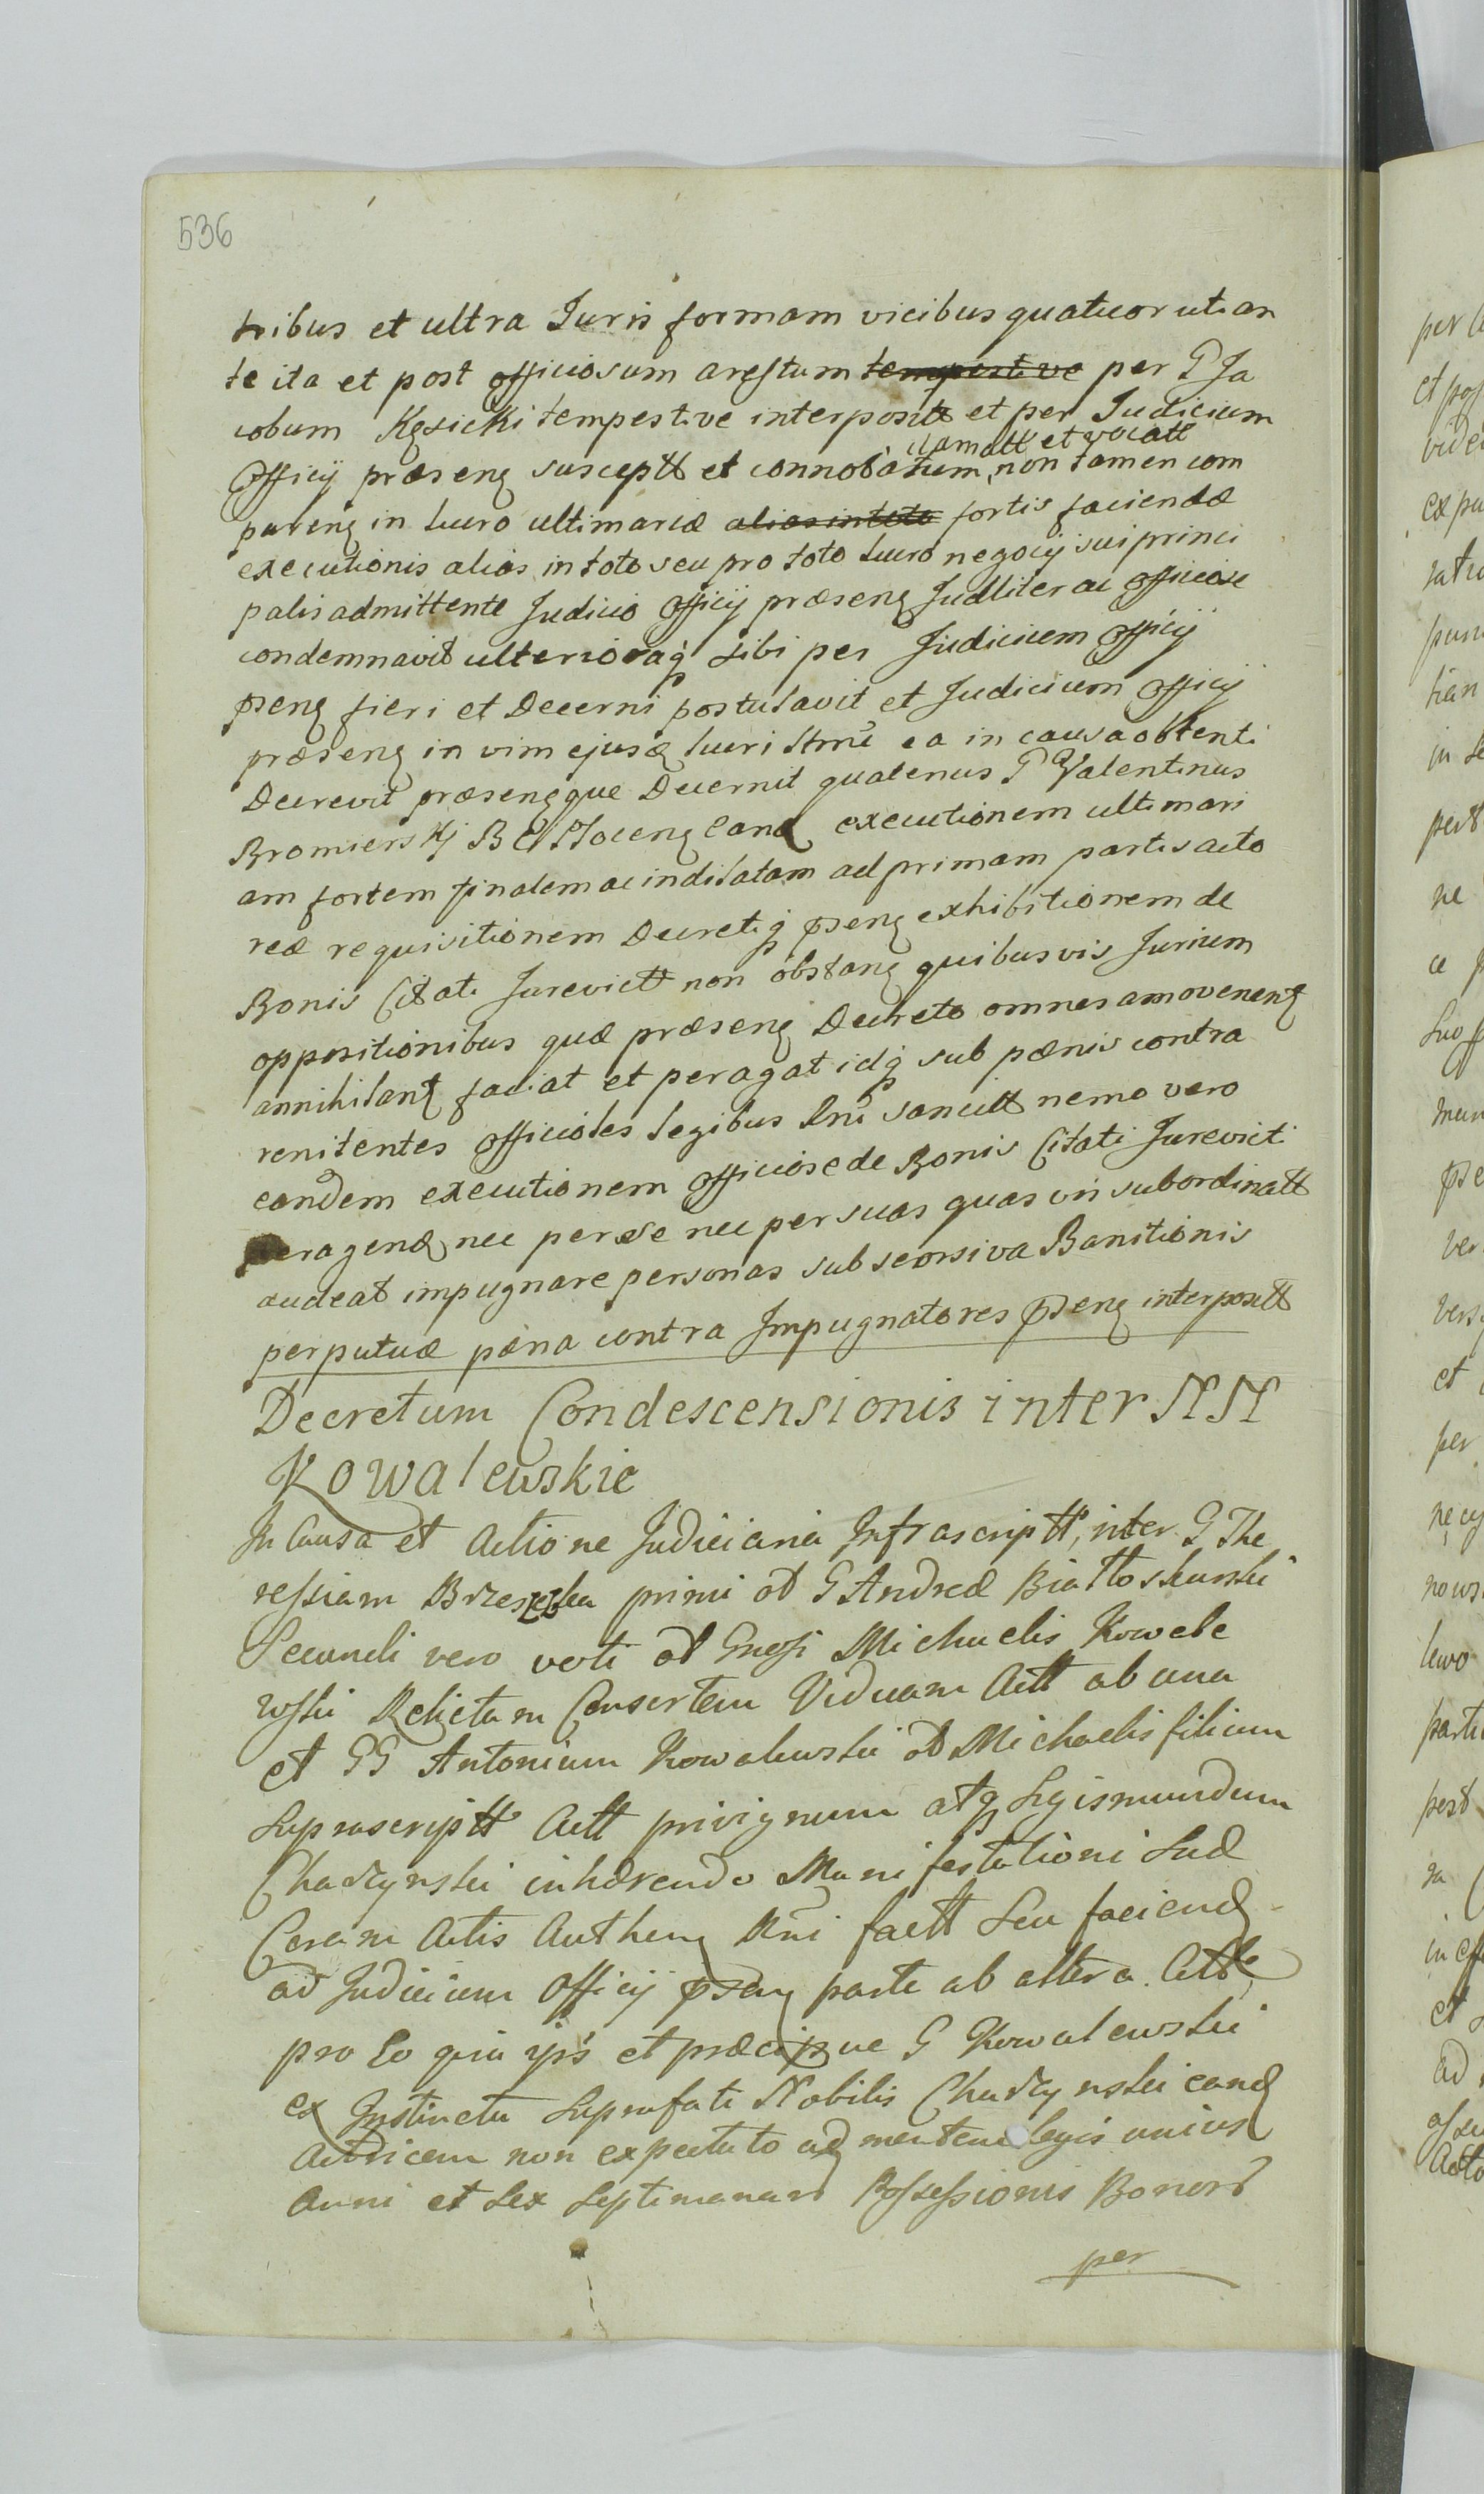 536
tribus et ultra Juris formam vicibus quatuor uti an
te ita et post officiosum arestum tempestive per G Ja
cobum Kęsicki tempestive interposit et per Judicium
clamatt et vocatt
Officij præsenς susceptt et connotatum, non tamen com
parenς in lucro ultimariæ alias in toto fortis faciendæ
executionis alias in toto seu pro toto lucro negocij sui princi
palis admittente Judicio Officij præsenς Judliter ac officiose
condemnavit ulterioraq sibi per Judicium Officij
psenς fieri et Decerni postulavit et Judicium Officij
præsenς in vim ejusd lucri in causa obtenti
Decrevit præsenςque Decernit quatenus G Valentinus
Bromierskj B C Plocenς eand executionem ultimari
am fortem finalem ac indilatam ad primam partis acto
reæ requisitionem Decretiq psenς exhibitionem de
Bonis Citati Jurevictt non obstanς quibusvis Jurium
oppositionibus quæ præsenς Decreto omnes amovenenς
annihilanς faciat et peragat idq sub pænis contra
renitentes officiales legibus Rni sancitt nemo vero
eandem executionem officiose de Bonis Citati Jurevicti
peragend nec per se nec per suas quas vis subordinatt
audeat impugnare personas sub seorsiva Banitionis
perpetuæ pæna contra Impugnatores psenς interpositt
Decretum Condescensionis inter NN
Kowalewskie
In Causa et Actione Judiciaria Infrascriptt, inter G The
ressiam primi ol G Andreæ Białłoskurski
Secundi vero voti ol Gnesi Michaelis Kowale
wski Relictam Consortem Viduam Actt ab una
et GG Antonium Kowalewski ol Michaelis filium
Suprascriptt Actt privignum atq Sigismundum
Chądzynski inhærendo Manifestationi Suæ
Coram Actis Authenς Rni factt Seu faciend
ad Judicium Officij psenς parte ab altera Cittos
pro Eo quia ipsi et præcipue G Kowalewski
ex Instinctu Suprafati Nobilis Chądzynski eand
Actricem non expectato ad mentem legis unius
Anni et Sex Septimanarum Possessionis Bonorum
per